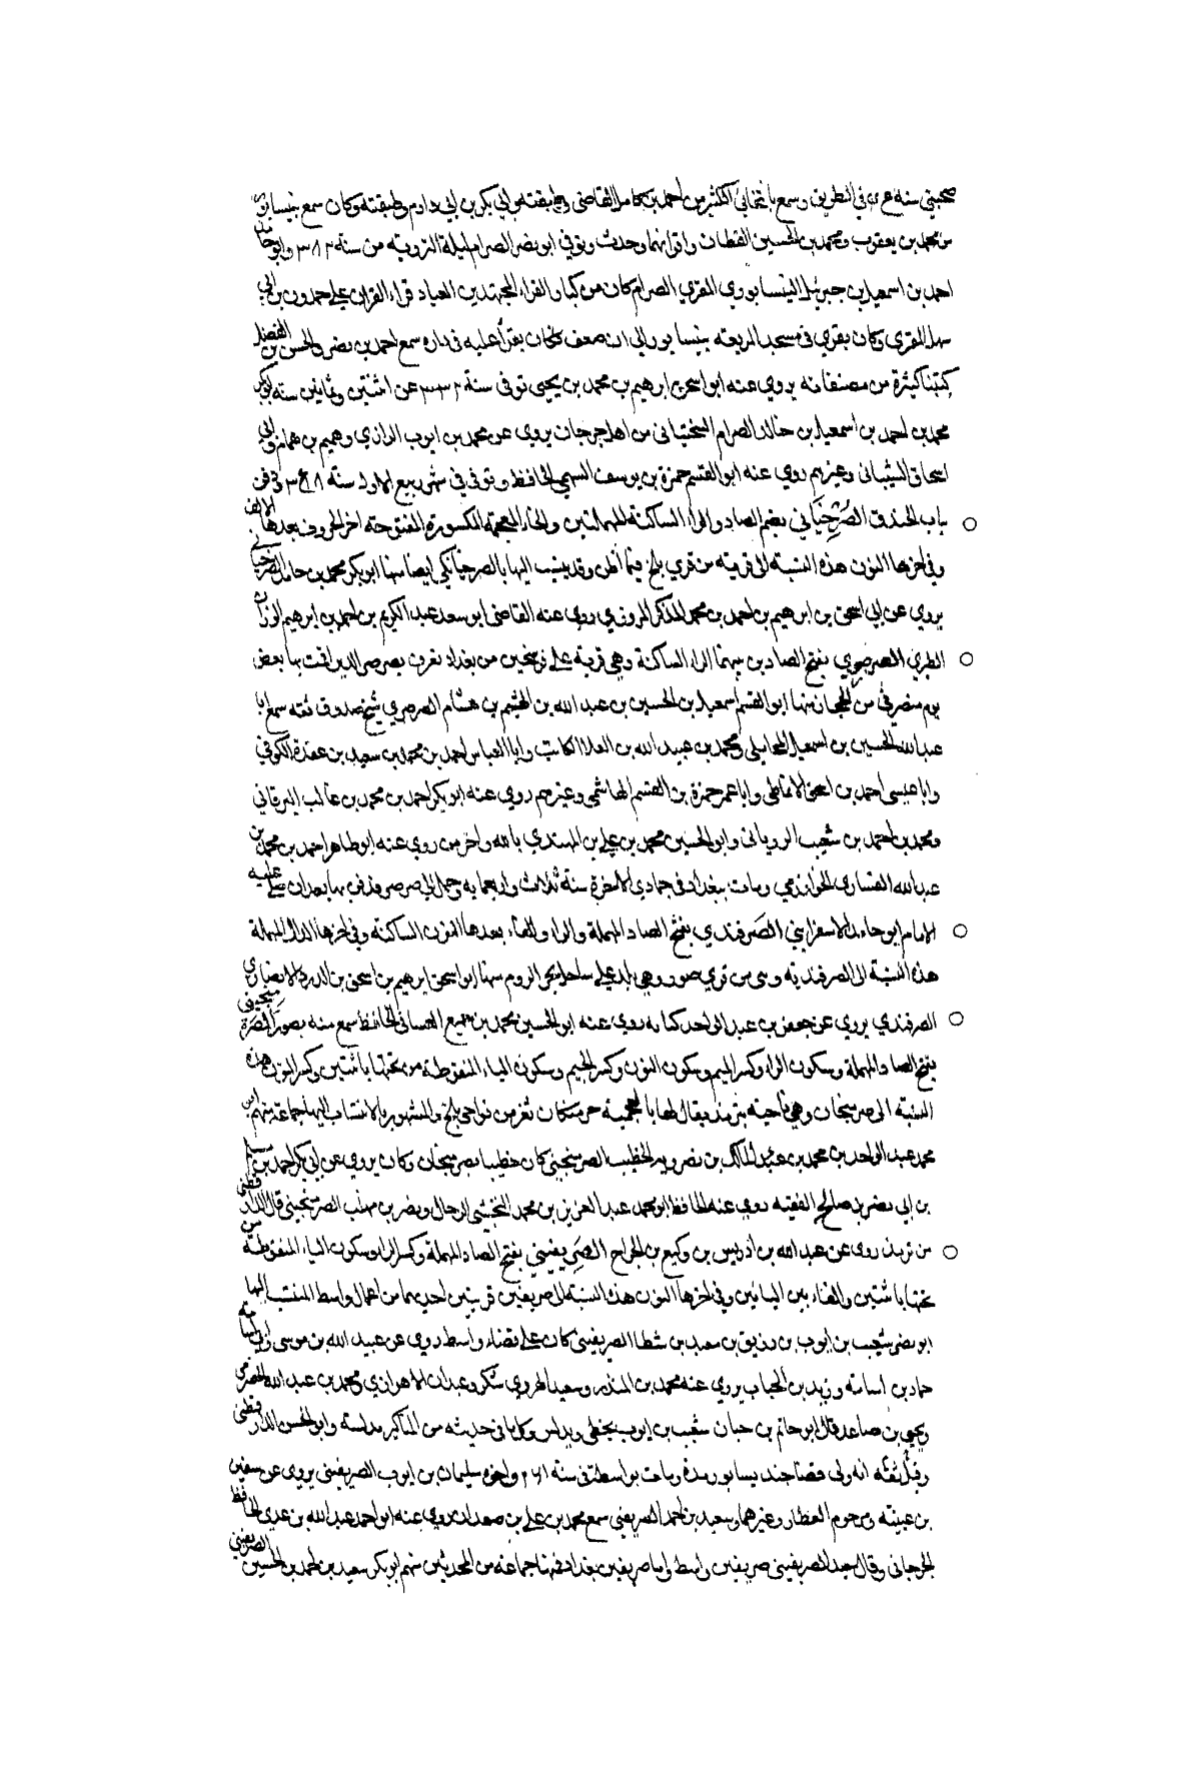 صحبني سنة في الطريق وسمع باغخابي الكثير من احمد بن كامل القاضي وطبقته وابي بكر بن ابي دارم وطبقته وكان سمع بنيسابور
من محمد بن يعقوب ومحمد بن الحسين القطان واقرانهما وحدث وتوفي ابو نصر الصرام ليلة التروية من سنة ٣٨٣ وابو حامد
احمد بن اسمعيل بن جبرئيل النيسابوري المقري الصرام كان من كبار القراء المجتهدين العباد قراء القران علي حمدون بن ابي
سهل المقري وكان يقري في مسجد المربعة بنيسابور الي ان ضعف فكان يقرأ عليه في داره سمع احمد بن نصر والحسن بن الفضل
كتبنا كثيرة من مصنفاته يروي عنه ابو اسحق ابرهيم بن محمد بن يحيى توفي سنة عن اثنتين وثمانين سنة ابو بكر
محمد بن احمد بن اسمعيل بن خالد الصرام السختياني من اهل جرجان يروي عن محمد بن ايوب الرازي وهميم بن همام وابي
اسحاق الشيباني وغيرهم روي عنه ابو القسم حمزة بن يوسف السهمي الحافظ وتوفي في شهر ربيع الاول سنة ودفن
بباب الخندق الصُرْخِيَاني بضم الصاد والراء الساكنة المهملتين والخاء المعجمة المكسورة المفتوحة اخر الحروف بعدها الالف
وفي اخرها النون هذه النسبة الى قرية من قري بلخ فيما اظن وقد ينسب اليها بالصرخيانكي ايضا منها ابو بكر محمد بن حامد الصرخياني
يروي عن ابي اسحق بن ابرهيم بن احمد بن محمد المذكر المروزي روي عنه القاضي ابو سعد عبد الكريم بن احمد بن ابرهيم الوزان
الطبري الصرصري بفتح الصادين بينهما الراء الساكنة وهي قرية علي فرسخين من بغداد تعرف بصرصر الدير اقمت بها بعض
يوم منصرفي من الحجاز منها ابو القسم اسمعيل بن الحسين بن عبد الله بن الهيثم بن هشام الصرصري شيخ صدوق ثقة سمع ابا
عبد الله الحسين بن اسمعيل المحاملي ومحمد بن عبيد الله بن العلا الكاتب وابا العباس احمد بن محمد بن سعيد بن عقدة الكوفي
وابا عيسى احمد بن اسحق الانماطي وابا عمر حمزة بن القسم الهاشمي وغيرهم روي عنه ابو بكر احمد بن محمد بن غالب البرقاني
ومحمد بن احمد بن شعيب الروياني وابو الحسين محمد بن علي بن المهتدي بالله واخر من روي عنه ابو طاهر احمد بن محمد بن
عبد الله القصاري الخوارزمي ومات ببغداد في جمادي الاخرة سنة ثلاث واربعمايه وحمل الي صرصر فدفن بها بعد ان صلى عليه
الامام ابو حامد الاسفرايني الصَرفندي بفتح الصاد المهملة والراء والفاء بعدها النون الساكنة وفي اخرها الدال المهملة
هذه النسبة الى الصرفندية وهي من قري صور وهي بلد علي ساحل بحر الروم منها ابو اسحق ابرهيم بن اسحق بن الدرداء الانصاري
الصرفندي يروي عن جعفر بن عبد الواحد كتابه روي عنه ابو الحسين محمد بن جميع الغساني الحافظ سمع منه بصور الصَرمَنجيني
بفتح الصاد المهملة وسكون الراء وكسر الميم وسكون النون وكسر الجيم وسكون الياء المنقوطة من تحتها باثنتين وكسر النون هذه
النسبة الى صرمنجان وهي ناحية بترمذ يقال لها بالعجمية جرمنكان ثغر من نواحي بلخ والمشهور بالانتساب اليها جماعة منهم ابو
محمد عبد الواحد بن محمد بن عبد الملك بن نصرويه الخطيب الصرمنجيني كان خطيبا بصرمنجان وكان يروي عن ابي بكر احمد بن مسلم
بن ابي نصر بن صالح الفقيه روي عنه الحافظ ابو محمد عبد العزيز بن محمد النخشبي الرحال ونصر بن مهلب الصرمنجيني قال الدارقطني
من ترمذ روى عن عبد الله بن ادريس بن وكيع بن الجراح الصَرِيفيني بفتح الصاد المهملة وكسر الراء وسكون الياء المنقوطة من
تحتها باثنتين والفاء بين اليائين وفي اخرها النون هذه النسبة الى صريفين قريتين احديهما من اعمال واسط المنتسب اليها
ابو نصر شعيب بن ايوب بن رزيق بن معبد بن شطا الصريفيني كان على قضاء واسط روي عن عبيد الله بن موسى وابي اسامة
حماد بن اسامة وزيد بن الحباب يروي عنه محمد بن المنذر وسعيد الهروي شكر وعبدان الاهوازي ومحمد بن عبد الله الحضرمي
ويحيى بن صاعد قال ابو حاتم بن حبان شعيب بن ايوب يخطي ويدلس وكل ما في حديثه من المناكير مدلسة وابو الحسن الدارقطني
وقيل ثقة انه ولى قضا جنديسابور مدة ومات بواسط في سنة ٢٦١ واخوه سليمان بن ايوب الصريفيني يروي عن سفين
بن عيينة ومرحوم العطار وغيرهما وسعيد بن احمد الصريفيني سمع محمد بن علي بن معدان يروي عنه ابو احمد عبد الله بن عدي الحافظ
الجرجاني وقال سعيد الصريفيني صريفين واسط واما صريفين بغداد فمنها جماعة من المحدثين منهم ابو بكر سعيد بن احمد بن الحسين الصريفيني